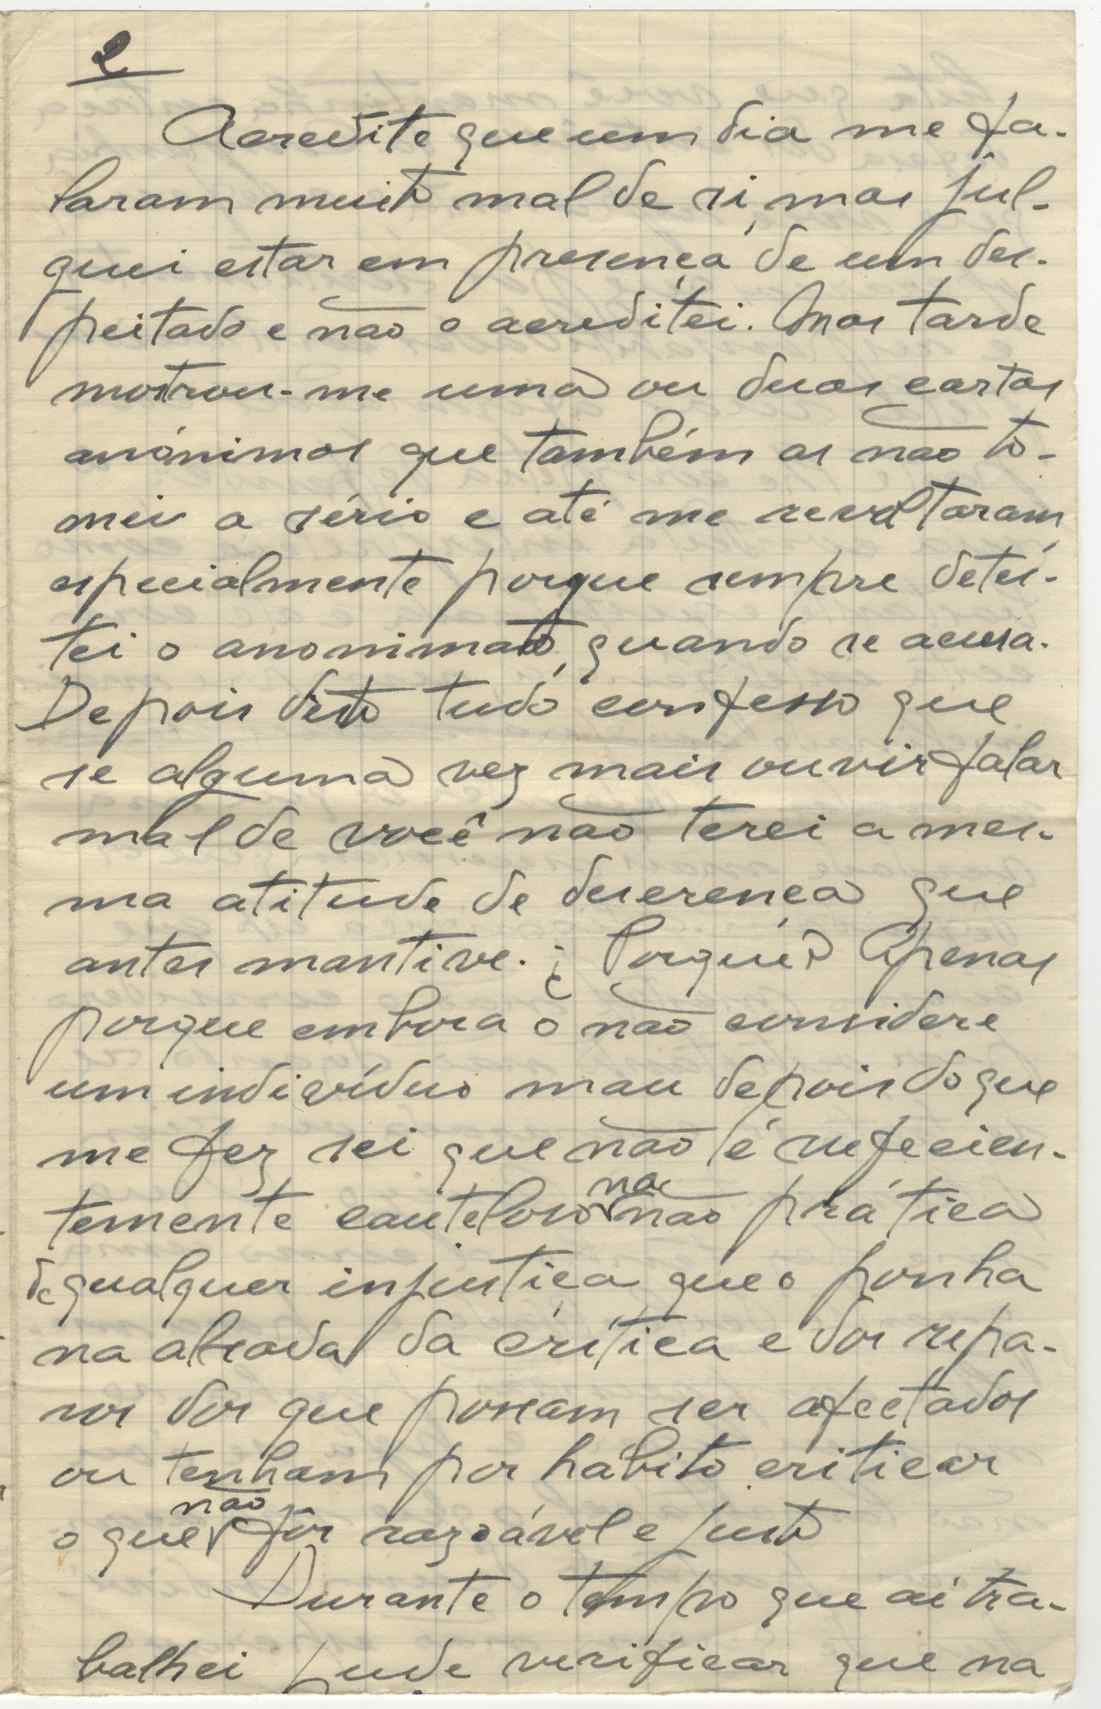 2
Acredite que um dia me fa-
laram muito mal de si, mas jul-
guei estar em presença de um des-
peitado e não o acreditei. Mas tarde
mostrou-me uma ou duas cartas
anónimas que também as não to-
mei a sério e até me revoltaram,
especialmente porque sempre detes-
tei o anonimato, quando se acusa.
Depois disto tudo confesso que
se alguma vez mais ouvir falar
mal de você não terei a mes-
ma atitude de descrença que
antes mantive. ¿ Porquê? Apenas
porque embora o não considere
um indivíduo mau depois do que
me fez sei que não é suficien-
temente cauteloso na não prática
de qualquer injustiça que o ponha
na alçada da crítica e dos repa-
ros dos que possam ser afectados
ou tenham por hábito criticar
o que não fôr razoável e justo
Durante o tempo que aí tra-
balhei pude verificar que na